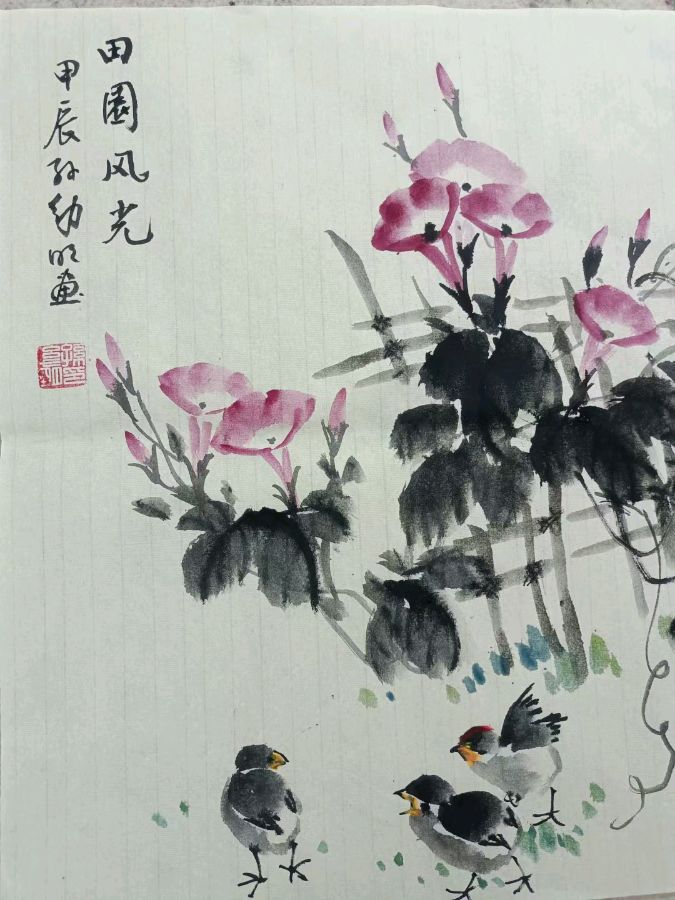 田園风光
甲辰孙幼明画